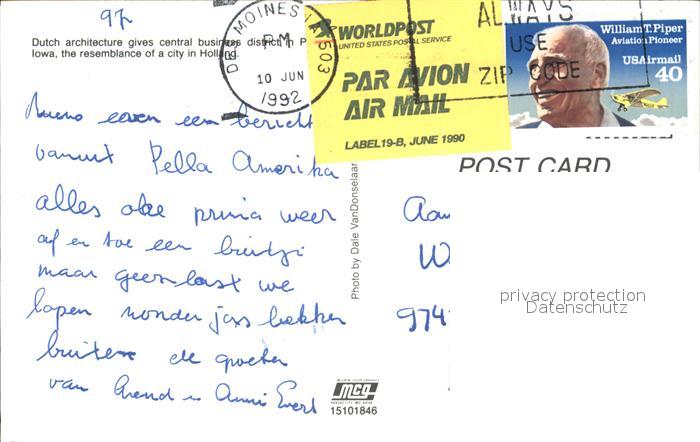 97
DES MOINES, IA 503
PM
10 JUN
1992
WORLDPOST
UNITED STATES POSTAL SERVICE
PAR AVION
AIR MAIL
LABEL 19-B, JUNE 1990
ALWAYS
USE
ZIP CODE
William T. Piper
Aviation Pioneer
USAirmail
40
Dutch architecture gives central business district in P
Iowa, the resemblance of a city in Holland.
even een bericht
vanuit Pella Amerika
alles oke prima weer
af en toe een
maar geen last we
lopen zonder jas lekker
buiten de groeten
van Arend en Annie
POST CARD
Photo by Dale VanDonselaar
Aan
W
974
privacy protection
Datenschutz
mcg
15101846